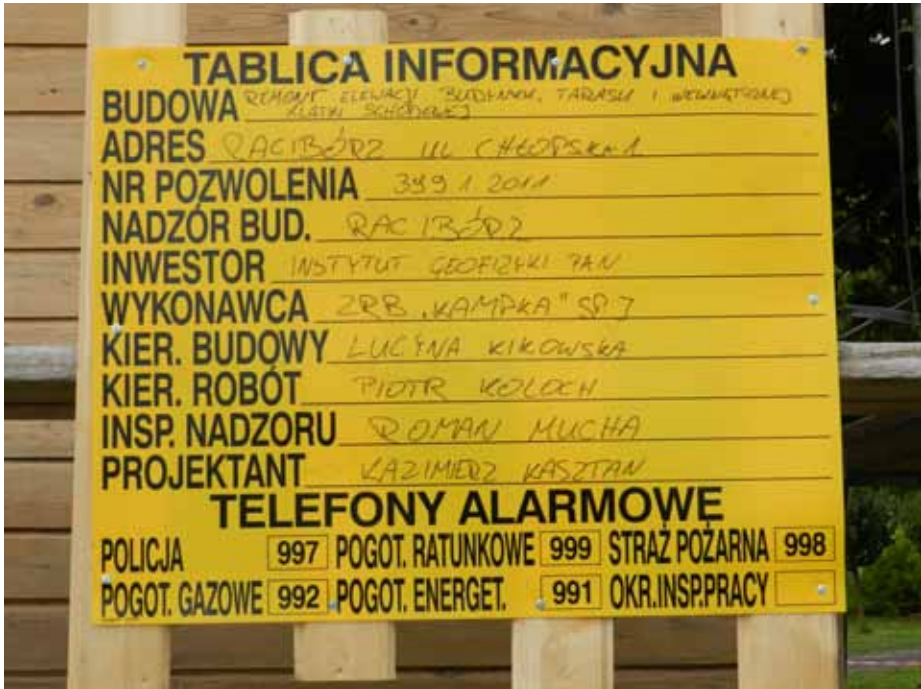 TABLICA INFORMACYJNA
BUDOWA REMONT ELEWACJI BUDYNKU, TARASU I WEWNĘTRZNEJ
KLATKI SCHODOWEJ
ADRES RACIBÓRZ UL CHŁOPSKA 1
NR POZWOLENIA 399 1 2011
NADZÓR BUD. RACIBÓRZ
INWESTOR INSTYTUT GEOFIZYKI PAN
WYKONAWCA ZRB „KAMPKA" SP J
KIER. BUDOWY LUCYNA KIKOWSKA
KIER. ROBÓT PIOTR KOLOCH
INSP. NADZORU ROMAN MUCHA
PROJEKTANT KAZIMIERZ KASZTAN
TELEFONY ALARMOWE
POLICJA 997 POGOT. RATUNKOWE 999 STRAŻ POŻARNA 998
POGOT. GAZOWE 992 POGOT. ENERGET. 991 OKR.INSP.PRACY